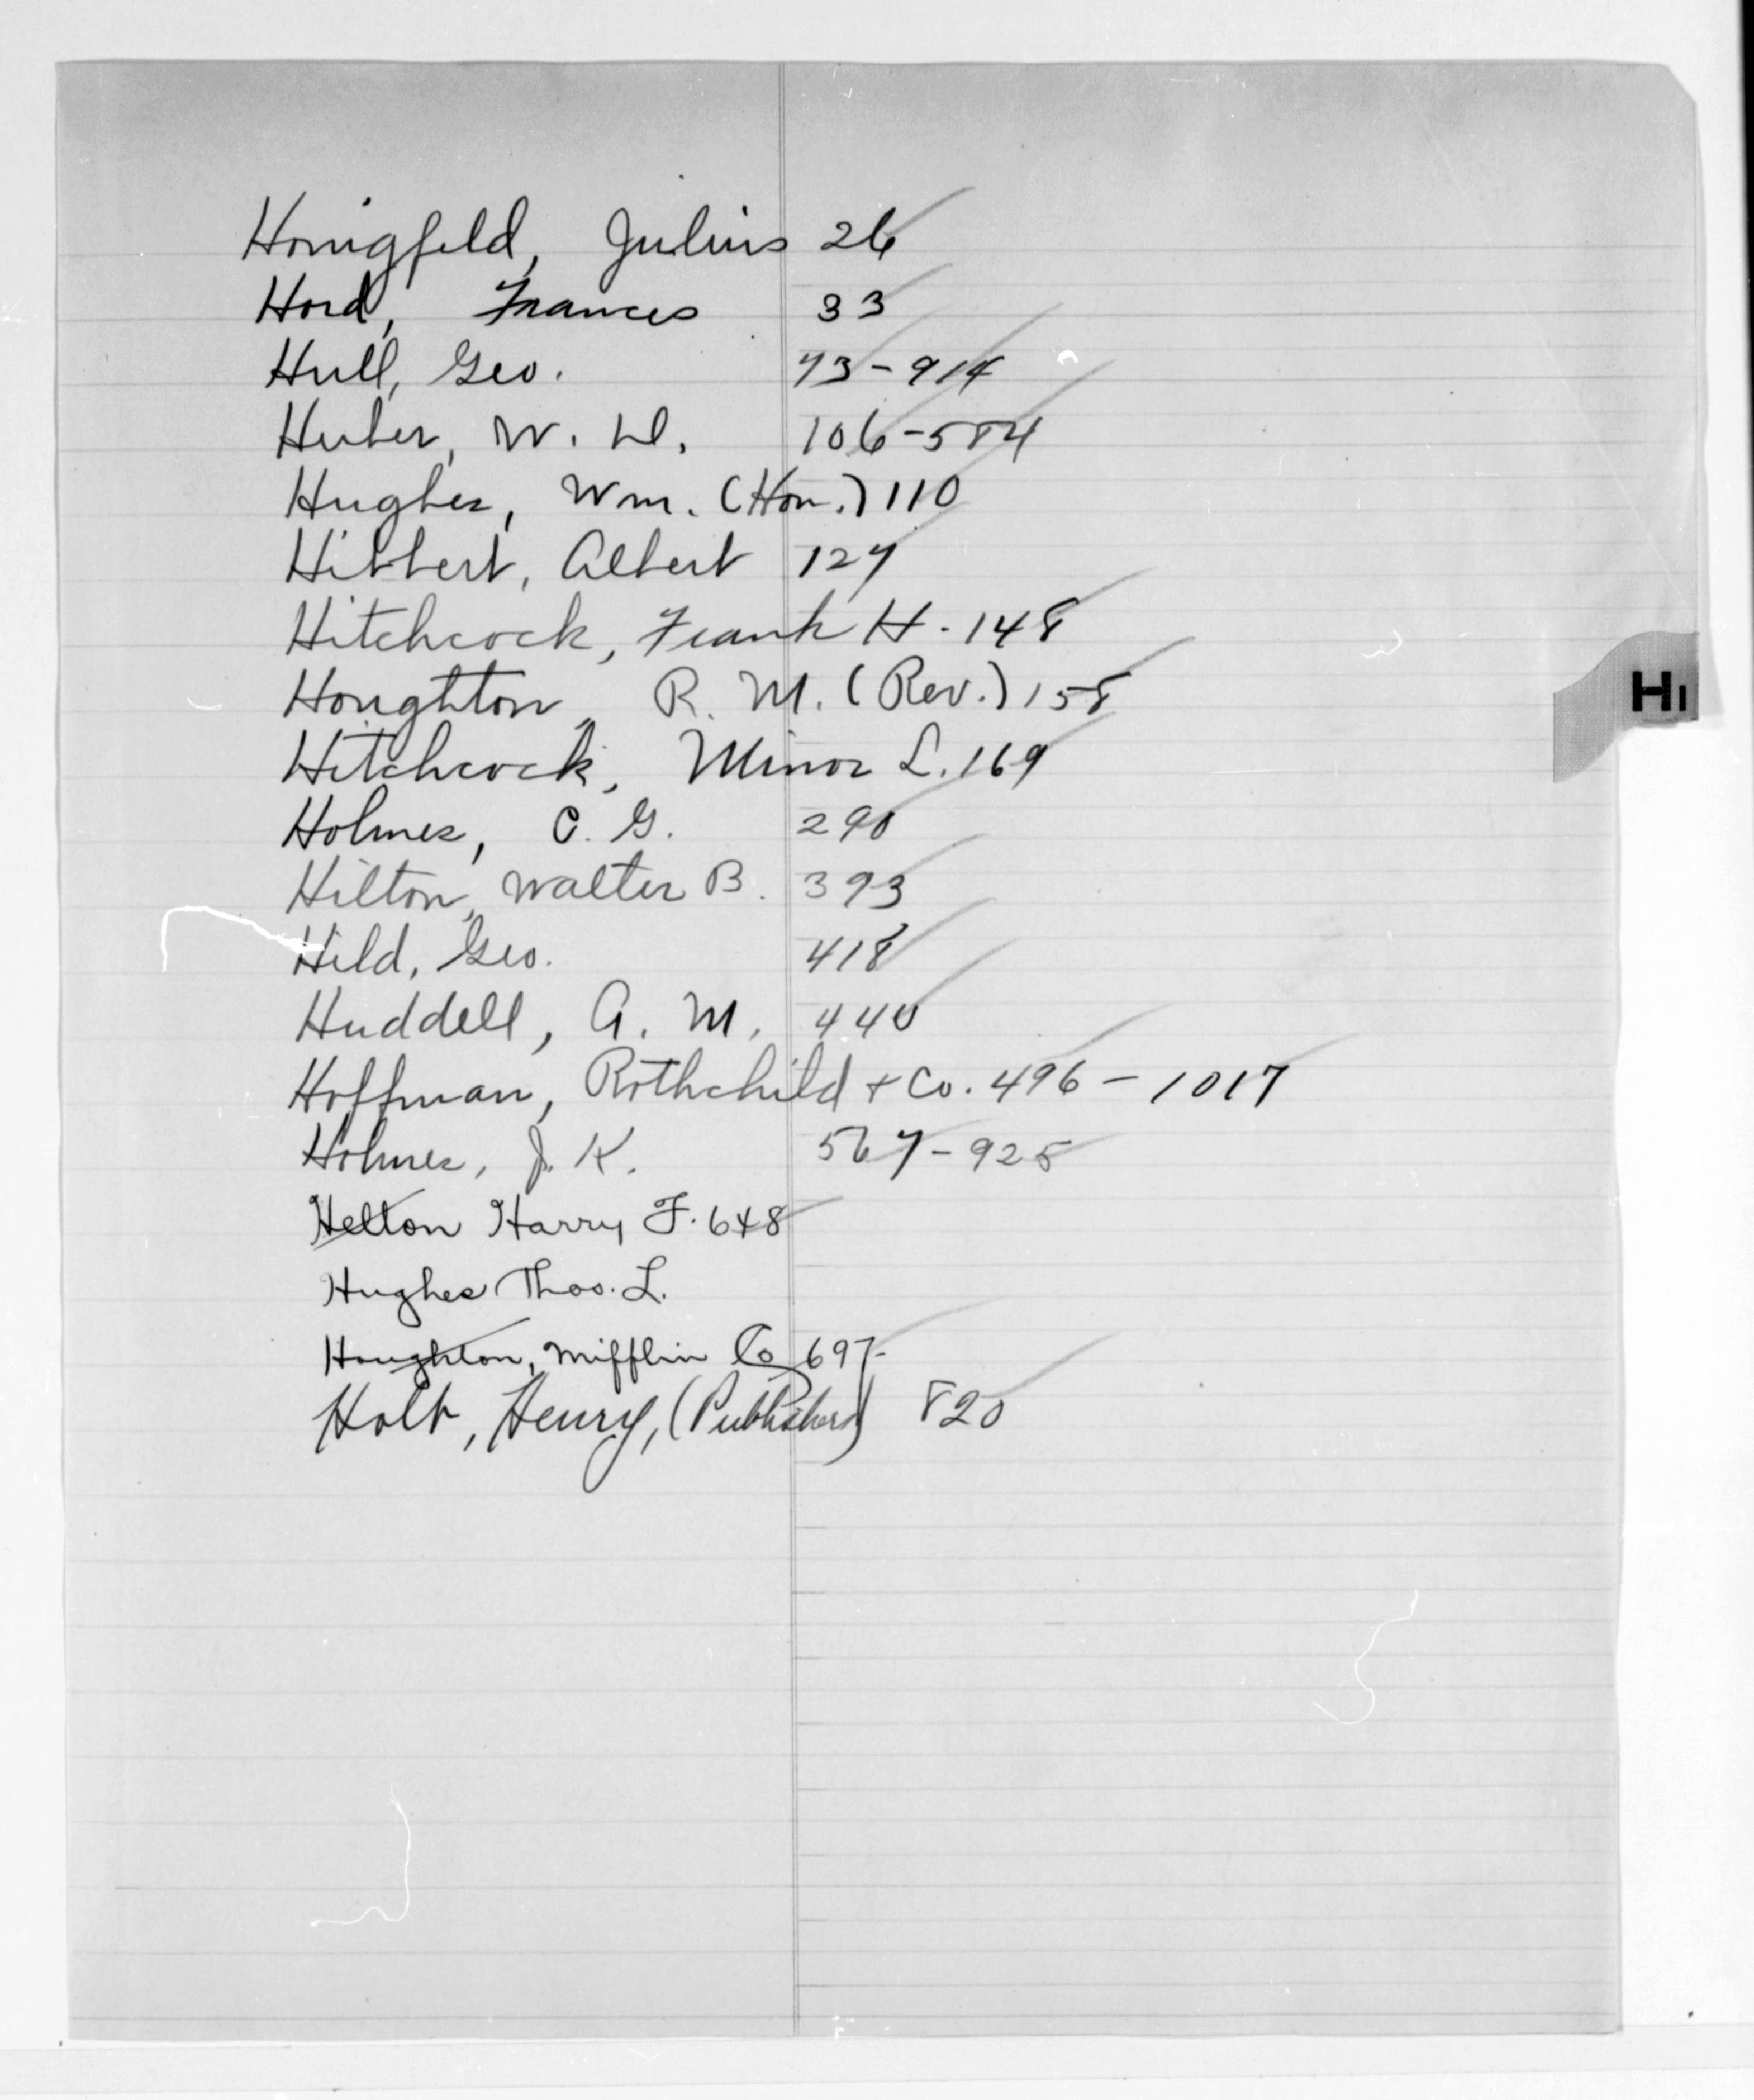 Honigfeld, Julius 26
Hord, Frances 33
Hull, Geo. 73-914
Huber, W. D. 106-584
Hughes, Wm. (Hon.) 110
Hibbert, Albert 127
Hitchcock, Frank H. 148
HI
Houghton, R. M. (Rev.) 158
Hitchcock, Minor L. 169
Holmes, C. G. 290
Hilton, Walter B. 393
Hild, Geo. 418
Huddell, A. M. 440
Hoffman, Rothchild & Co. 496 - 1017
Holmes, J. K. 567-925
Helton Harry F. 648
Hughes Thos. L.
Houghton, Mifflin Co 697-
Holt, Henry, (Publishers) 820